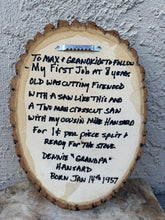 To MAX & GRANDKIDS TO FOLLOW
- My First Job AT 8 years
OLD WAS CUTTING FIREWOOD
WITH A SAW LIKE THIS AND
A TWO MAN CROSSCUT SAW
WITH MY COUSIN MIKE HANSARD
FOR 1¢ PER PIECE SPLIT &
READY FOR THE STOVE.
DENNIS "GRANDPA"
HANSARD
BORN JAN 14TH 1957